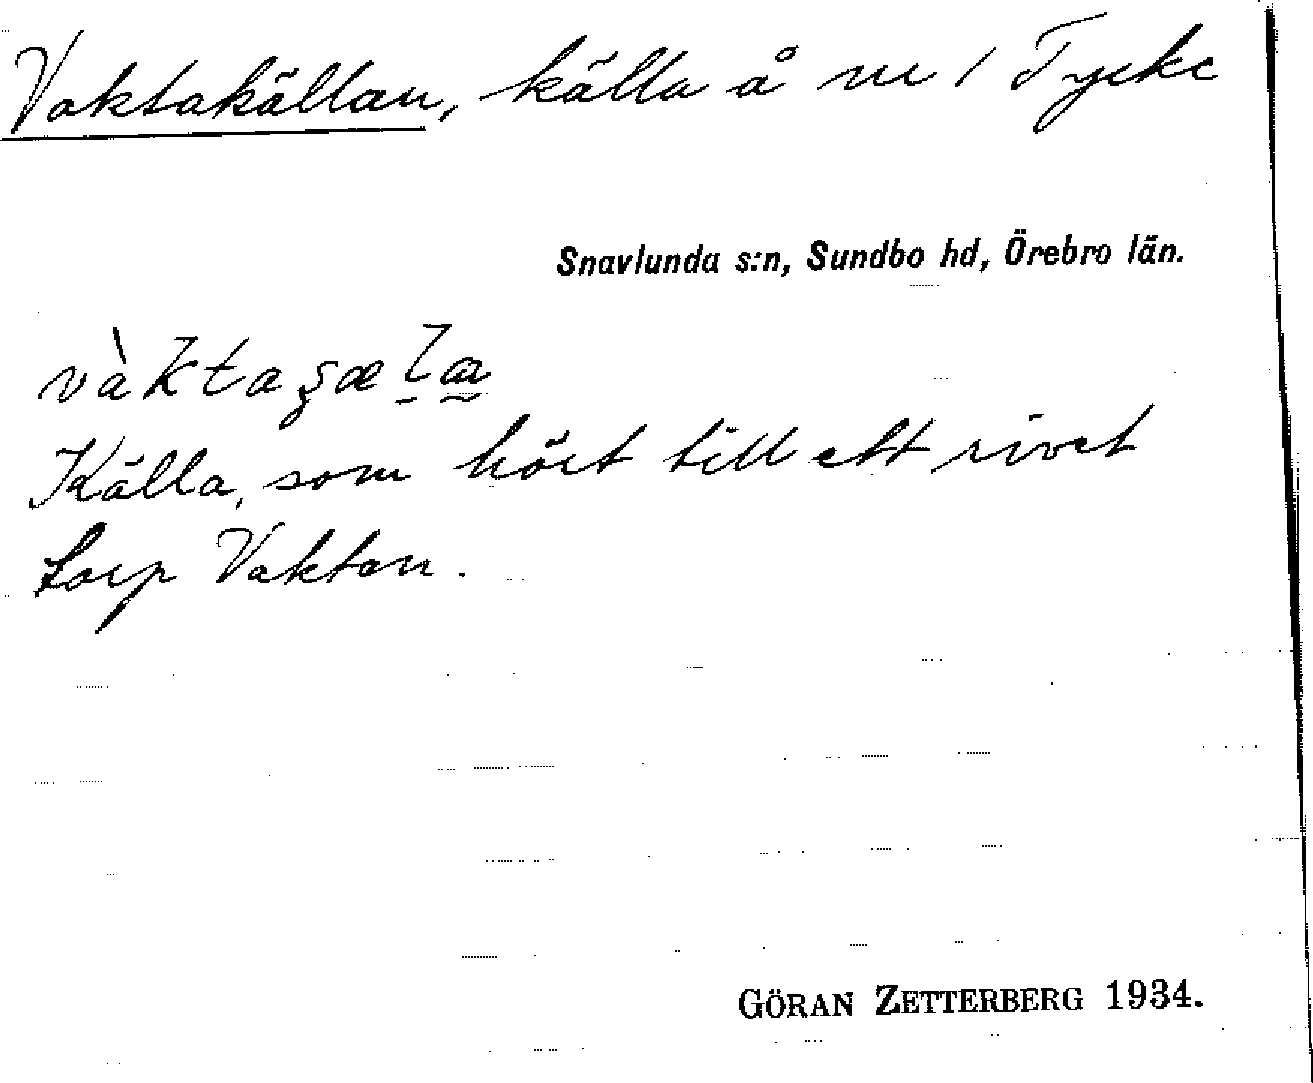 Vaktakällan, källa å nr 1 Tycke
Snavlunda s:n, Sundbo hd, Örebro län.
vàktaʂæla
Källa, som hört till ett rivet
torp Vaktan.
GÖRAN ZETTERBERG 1934.